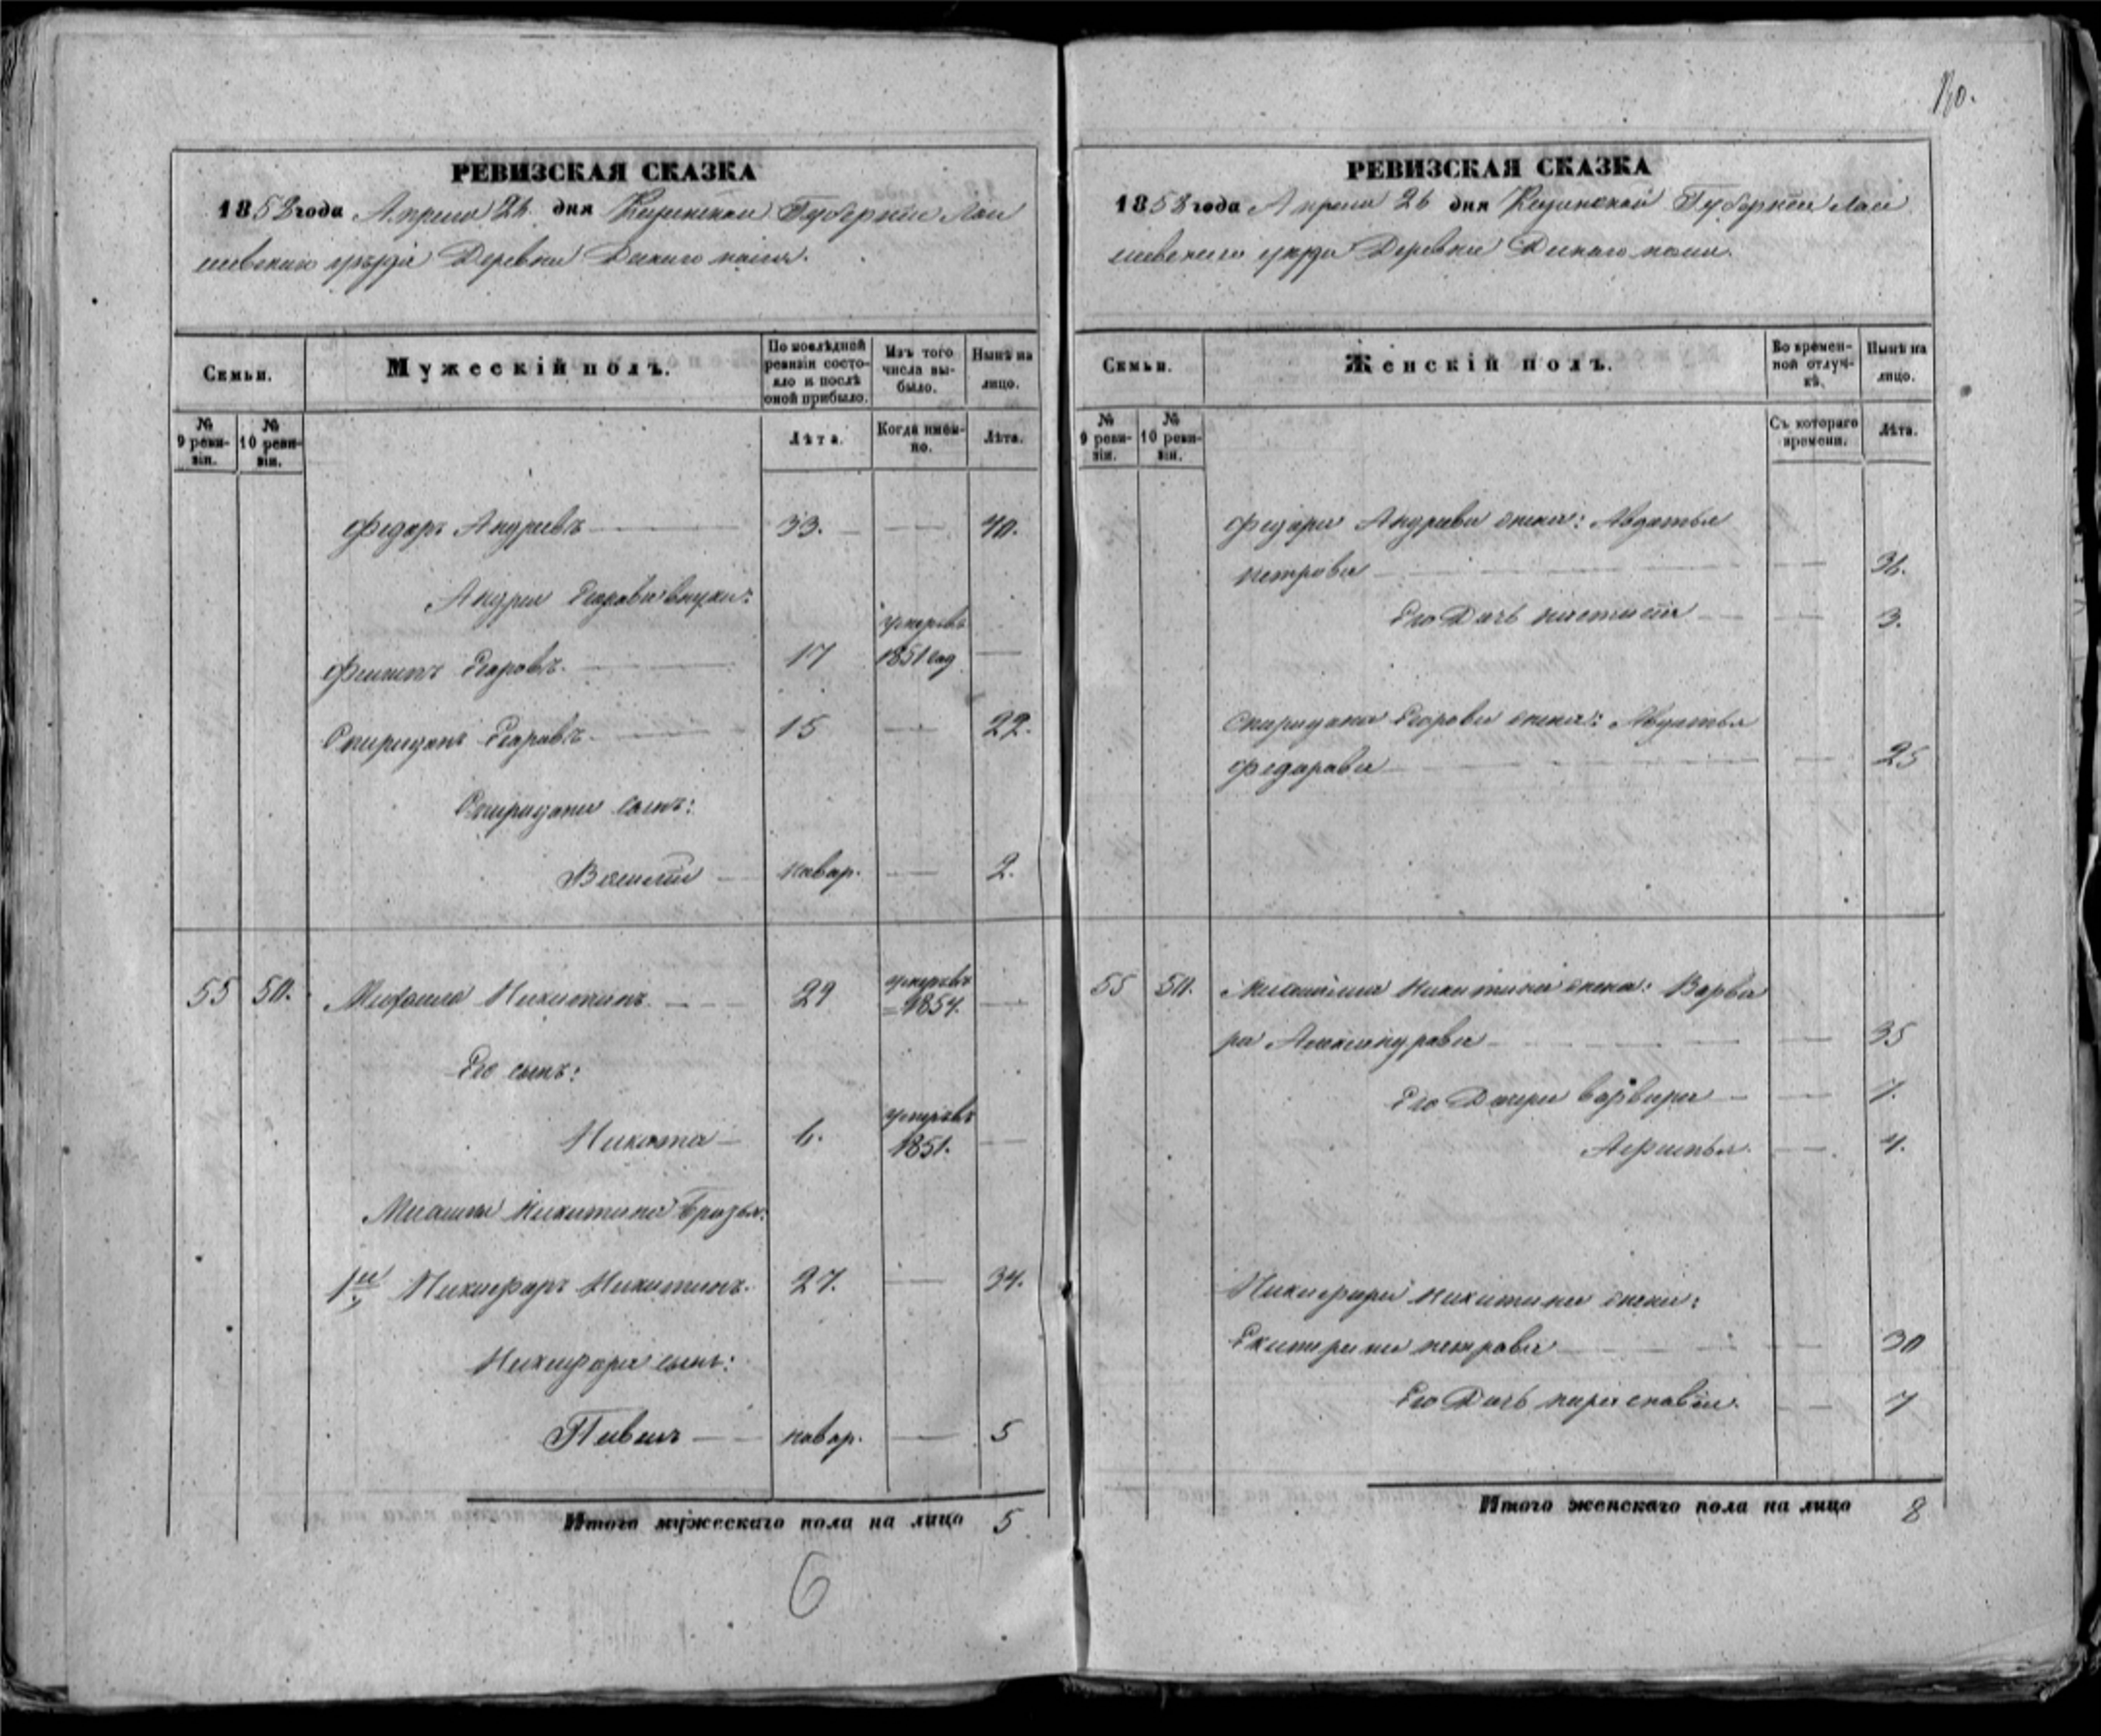 110.
РЕВИЗСКАЯ СКАЗКА
1858 года Апреля 26 дня Казанской Губернiи Лаи
шевскаго уѣзда Деревни Дикаго поля.
Семьи.
Мужескiй полъ.
По послѣдней ревизiи состо-
яло и послѣ
оной прибыло.
Изъ того
числа вы-
было.
Нынѣ на
лицо.
№
9 реви-
зiи.
№
10 реви-
зiи.
Лѣта.
Когда имен-
но.
Лѣта.
Федоръ Андреевъ 33. 40.
Андрея Егорова внуки:
Филипъ Егоровъ. 17 умеръ въ 1851 год
Спиридонъ Егоровъ. 15 22.
Спиридона сынъ:
Василiй новор. 2.
55 50. Михаила Никитинъ. 29 умеръ въ 1854.
Его сынъ:
Никита 6. умеръ въ 1851.
Михаила Никитина Братья:
1й Никифоръ Никитинъ. 27. 34.
Никифора сынъ:
новор. 5
Итого мужескаго пола на лицо 5
6
РЕВИЗСКАЯ СКАЗКА
1858 года Апреля 26 дня Казанской Губернiи Лаи
шевскаго уѣзда Деревни Дикаго поля.
Семьи.
Женскiй полъ.
Во времен-
ной отлуч-
кѣ.
Нынѣ на
лицо.
№
9 реви-
зiи.
№
10 реви-
зiи.
Съ котораго
времени.
Лѣта.
Федора Андреева жена: Авдотья
петрова 36.
Его Дочь настасiя 3.
Спиридона Егорова жена: Авдотья
Федорова 25
55 50. Михаила Никитина жена: Варва
ра Александрова 35
Его Дочери варвара 7.
4.
Никифора Никитина жена:
Екатерина петрова 30
Его Дочь парасковiя. 7
Итого женскаго пола на лицо 8